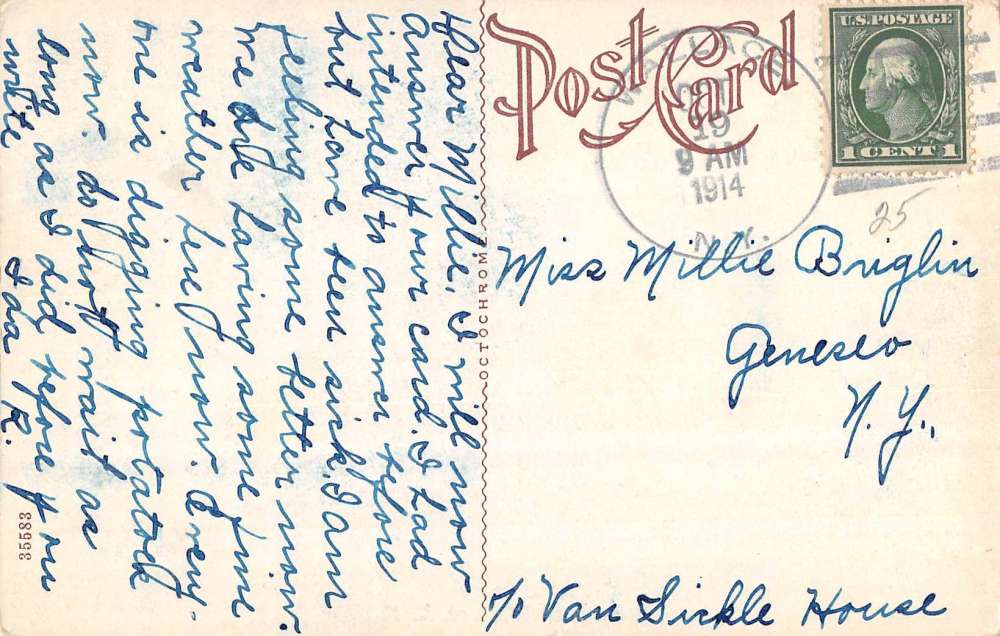 Post Card
U.S. POSTAGE
1 CENT 1
OCT
19
9 AM
1914
N.Y.
25
Dear Millie. I will now
answer your card. I had
intended to answer before
but have been sick. I am
feeling some better now.
We are having some fine
weather here now. Every-
one is digging potatoes
now. do not wait as
long as I did before you
write
Ida R.
OCTOCHROME
35583
Miss Millie Briglin
Geneseo
N.Y.,
c/o Van Sickle House